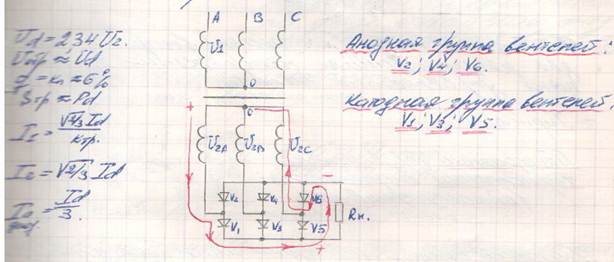 Ud = 2,34 U2.
Uобр ≈ Ud
d = кп ≈ 6%
Sтр ≈ Pd
I1 = √2/3 Id / Kтр.
I2 = √2/3 Id
Ia = Id / 3.
A B C
U1
0
0
+
U2A U2B U2C
V2 V4 V6
V1 V3 V5
−
Rн.
+
Анодная группа вентелей:
V2; V4; V6.
Катодная группа вентелей
V1; V3; V5.